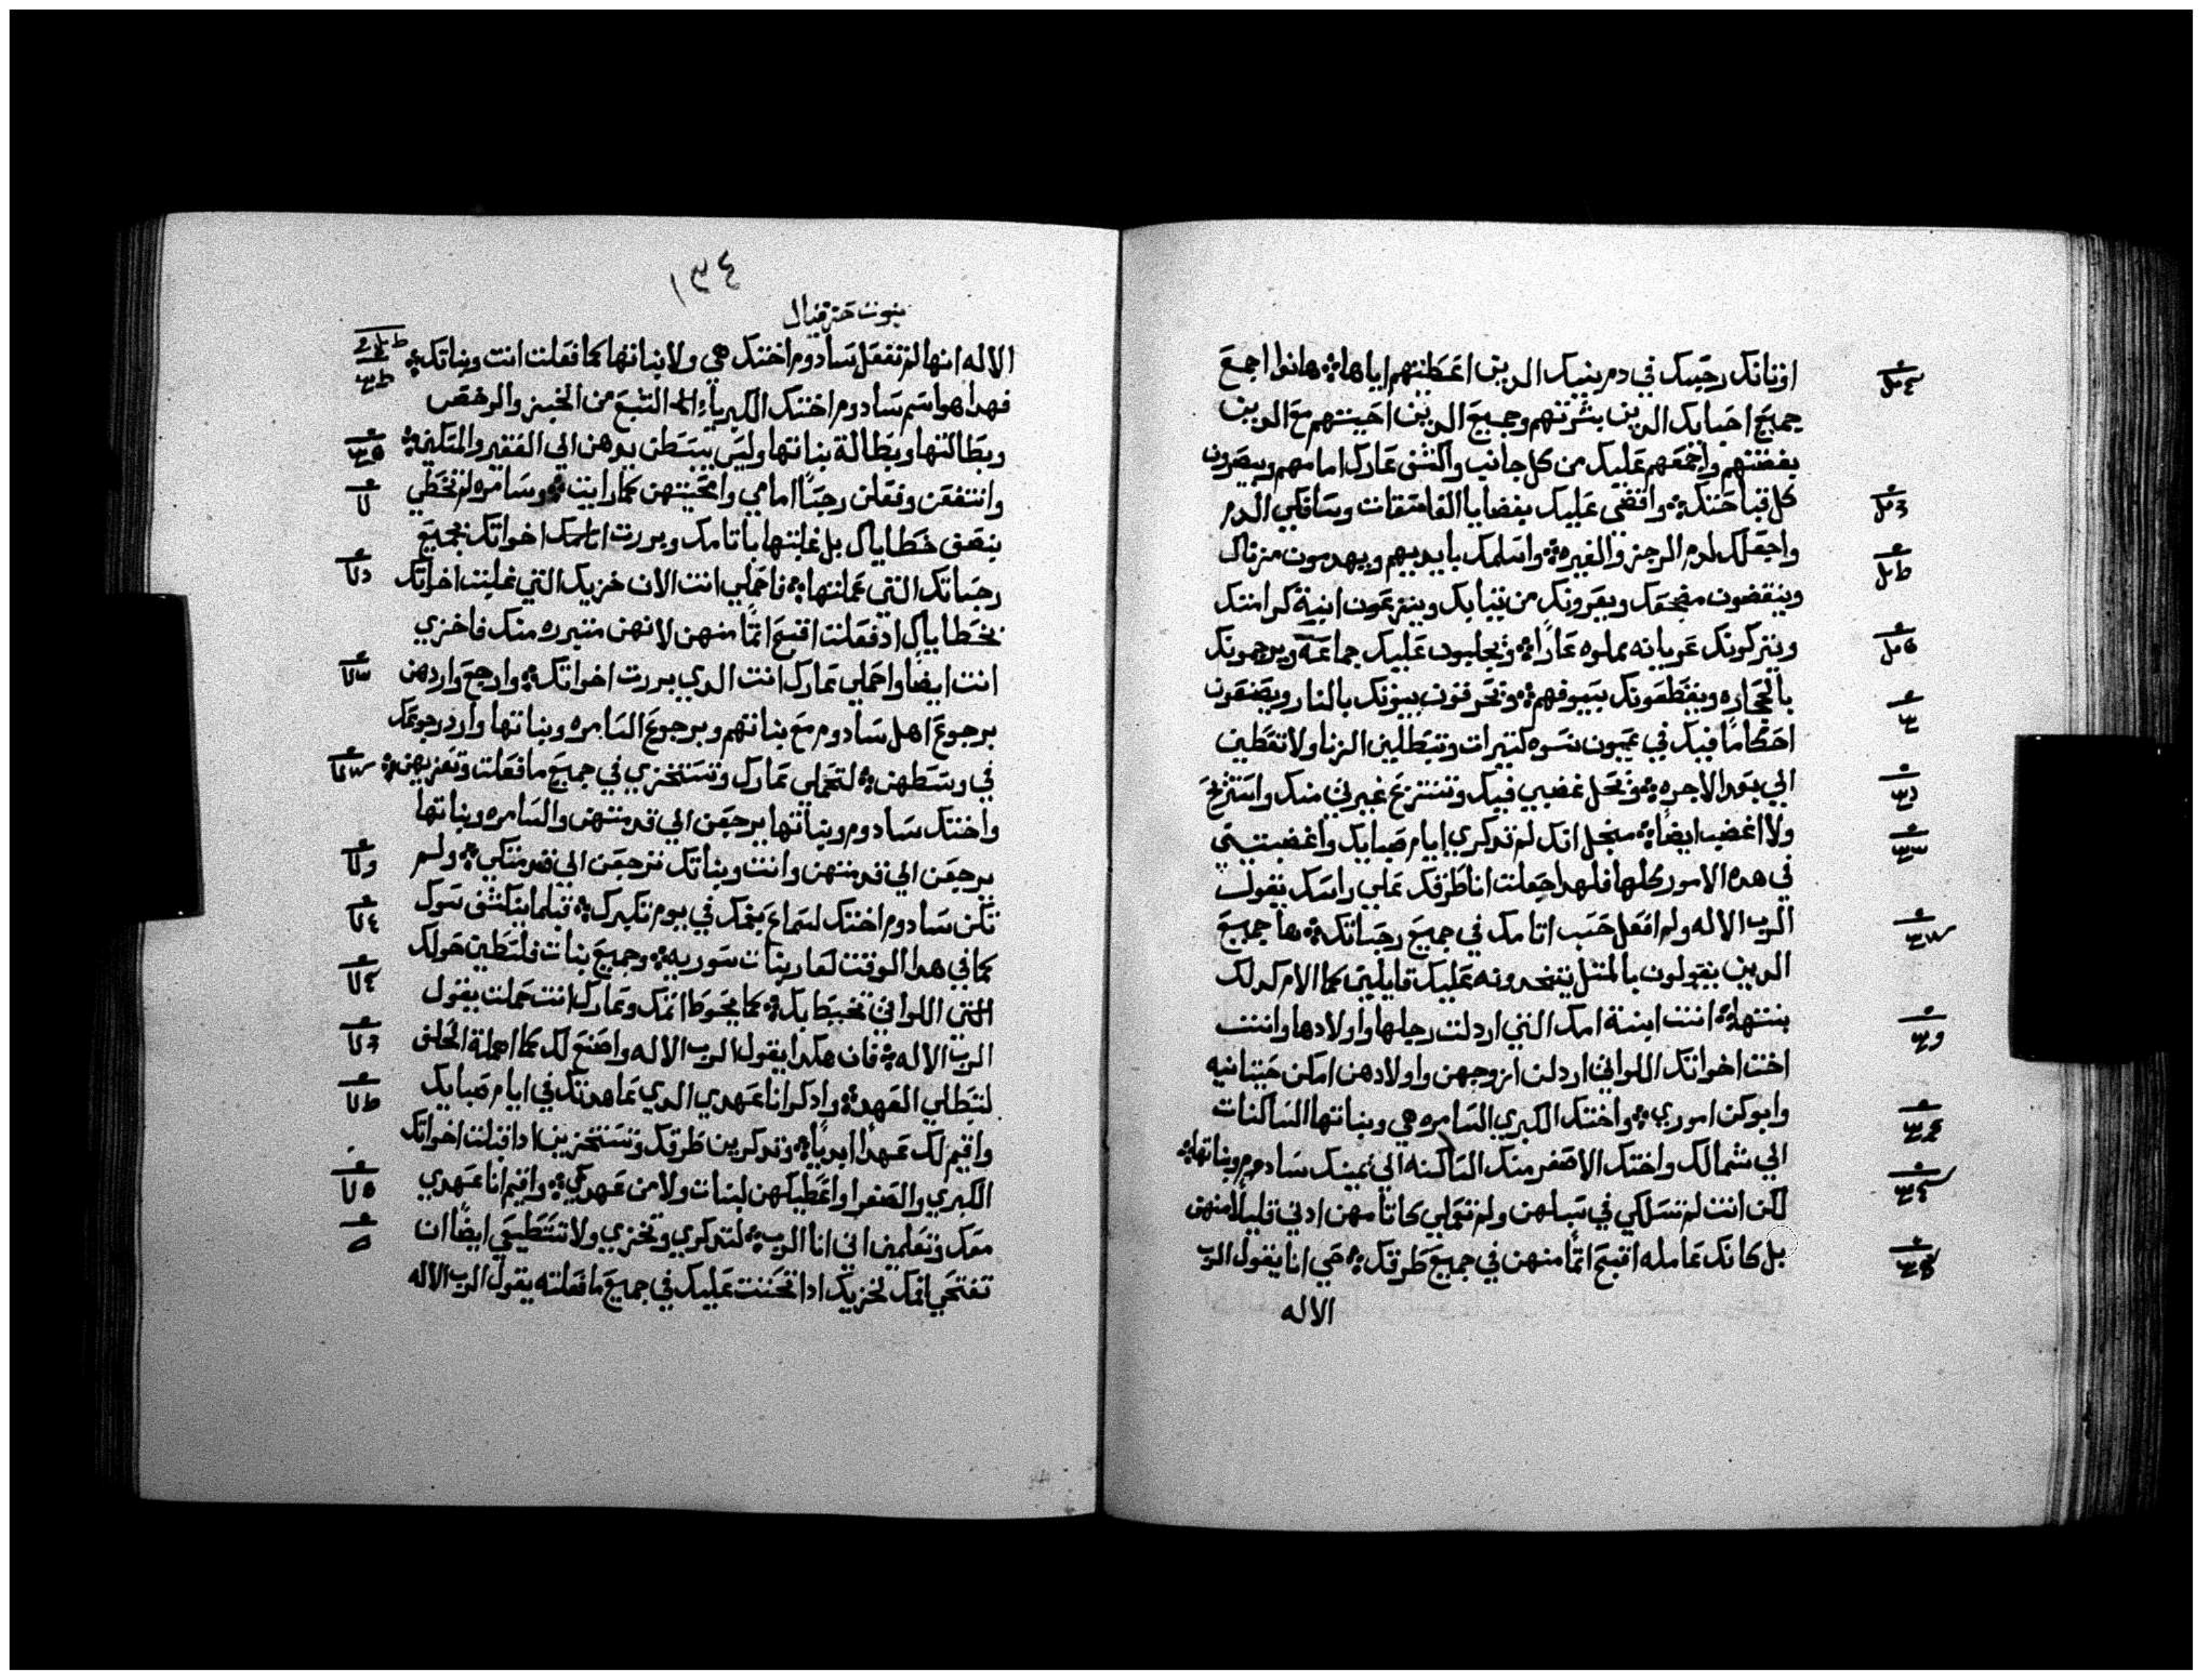 اوثانك رجسك في دم بنيك الدين اعطيتهم اياها؞ هانذا اجمع
جميع احبابك الدين بشرتهم وجميع الدين احببتهم مع الدين
بغضتهم واجمعهم عليك من كل جانب واكشف عارك امامهم ويبصرون
كل قباحتك؞ واقضي عليك بقضايا الفاسقات وسافكي الدم
واجعلك لدم الرجز والغيره؞ واسلمك بايديهم ويهدمون منزناك
وينقضون مضجعك ويعرونك من ثيابك وينتزعون ابنية كرامتك
ويتركونك عريانه مملوه عارًا؞ ويجلبون عليك جماعة ويرجمونك
بالحجاره ويقطعونك بسيوفهم؞ ويحرقون بيوتك بالنار ويصنعون
احكامًا فيك في عيون نسوه كتيرات وتبطلين الزنا ولا تعطين
الي بعد الاجره؞ وتحل غضبي فيك وتنتزع غيرتي منك واستريح
ولا اغضب ايضًا؞ منجل انك لم تدكري ايام صبايك واغضبتيني
في هده الامور كلها فلهدا جعلت انا طرقك علي راسك يقول
الرب الاله ولم افعل حسب اتامك في جميع رجساتك؞ ها جميع
الدين يقولون بالمتل يتخدونه عليك قايلين كما الام كدلك
بنتها؞ انت ابنة امك التي اردلت رجلها واولادها وانت
اخت اخواتك اللواتي اردلن ازوجهن واولادهن امكن حيتانيه
وابوكن اموري؞ واختك الكبري السامره هي وبناتها الساكنات
الي شمالك واختك الاصغر منك الساكنه الي يمينك سادوم وبناتها؞
لكن انت لم تسلكي في سبلهن ولم تعملي كاتامهن ادني قليلا منهن
بل كانك عامله اقبح اتمًا منهن في جميع طرقك؞ حي انا يقول الرب
الاله
١٣٤
بنوت حزقيال
الاله انها لم تفعل سادوم اختك هي ولا بناتها كما فعلت انت وبناتك؞
فهدا هو اسم سادوم اختك الكبرياء الشبع من الخبز والرخص
وبطالتها وبطالة بناتها وليس يبسطن يدهن الي الفقير والمسكين؞
وانتفقن وفعلن رجسًا امامي وامحيتهن كما رايت؞ وسامره لم تخطي
بنصف خطاياك بل غلبتها باتامك وبررت اخواتك بجميع
رجساتك التي عملتها؞ فاحملي انت الان خزيك التي غلبت اخواتك
بخطاياك اد فعلت اقبح اتمًا منهن لانهن متبرره منك فاخزي
انت ايضًا واحملي عارك انت الدي بررت اخواتك؞ وارجع واردهن
برجوع اهل سادوم مع بناتهم وبرجوع السامره وبناتها وارد رجوعك
في وسطهن؞ لتحملي عارك وتستخزي في جميع ما فعلت وتعزيهن؞
واختك سادوم وبناتها يرجعن الي قدمتهن والسامره وبناتها
يرجعن الي قدمتهن وانت وبناتك ترجعن الي قدمتكي؞ ولم
تكن سادوم اختك لسماع بفمك في يوم تكبرك؞ قبلما ينكشف سوك
كما في هدا الوقت لعار بنات سوريه؞ وجميع بنات فلسطين حولك
اللواتي تحيط بك؞ كما يحوط اتمك وعارك انت حملت يقول
الرب الاله؞ فان هكدا يقول الرب الاله واصنع لك كما اهملة الحلف
لتبطلي العهد؞ وادكر انا عهدي الدي عاهدتك في ايام صبايك
واقيم لك عهدًا ابديًا؞ وتدكرين طرقك وتستخزين ادا قبلت اخواتك
الكبري والصغرا واعطيكهن لبنات ولا من عهدكي؞ واقيم انا عهدي
معك وتعلمين اني انا الرب؞ لتدكري وتخزي ولا تستطيعي ايضًا ان
تفتحي فمك لخزيك ادا تحننت عليك في جميع ما فعلته يقول الرب الاله